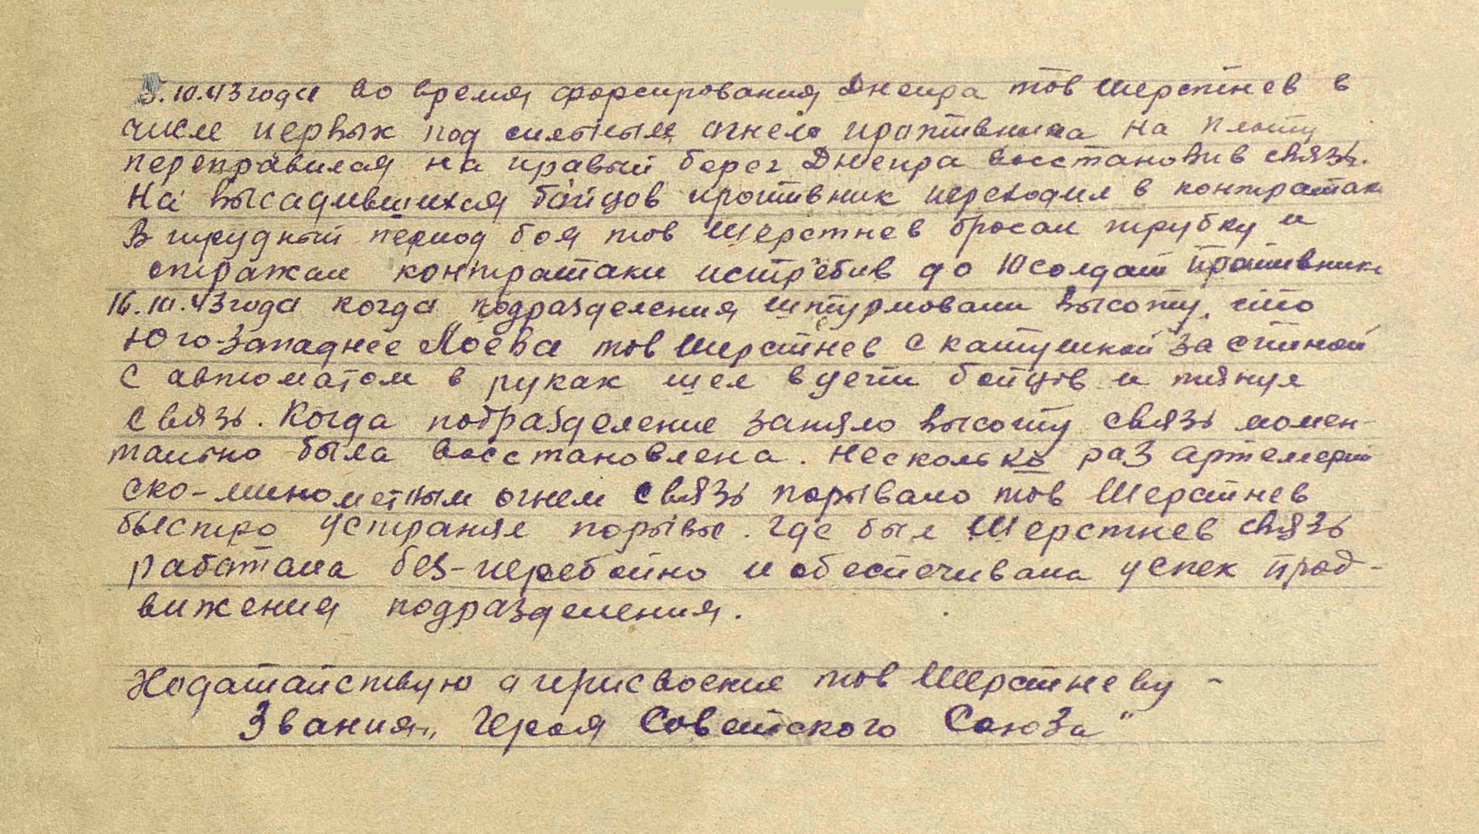 5.10.43 года во время форсирования Днепра тов Шерстнев в
числе первых под сильным огнем противника на плоту
переправился на правый берег Днепра восстановив связь.
На высадившихся бойцов противник переходил в контратак
В трудный период боя тов Шерстнев бросал трубку и
отражал контратаки истребив до 10 солдат противника
16.10.43 года когда подразделения штурмовали высоту, что
Юго-западнее Лоева тов Шерстнев с катушкой за спиной
с автоматом в руках шел в цепи бойцов и тянул
связь. Когда подразделение заняло высоту связь момен-
тально была восстановлена. Несколько раз артелерий
ско-минометным огнем связь порывало тов Шерстнев
быстро устранял порывы. Где был Шерстнев связь
работала без-перебойно и обеспечивала успех прод-
вижения подразделения.
Ходатайствую о присвоение тов Шерстневу -
Звания „Героя Советского Союза"